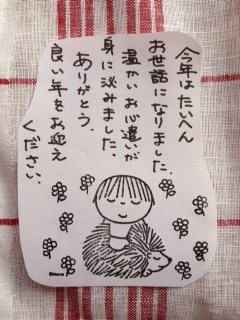 今年はたいへん
お世話になりました.
温かいお心遣いが
身に泌みました.
ありがとう.
良い年をお迎え
ください.